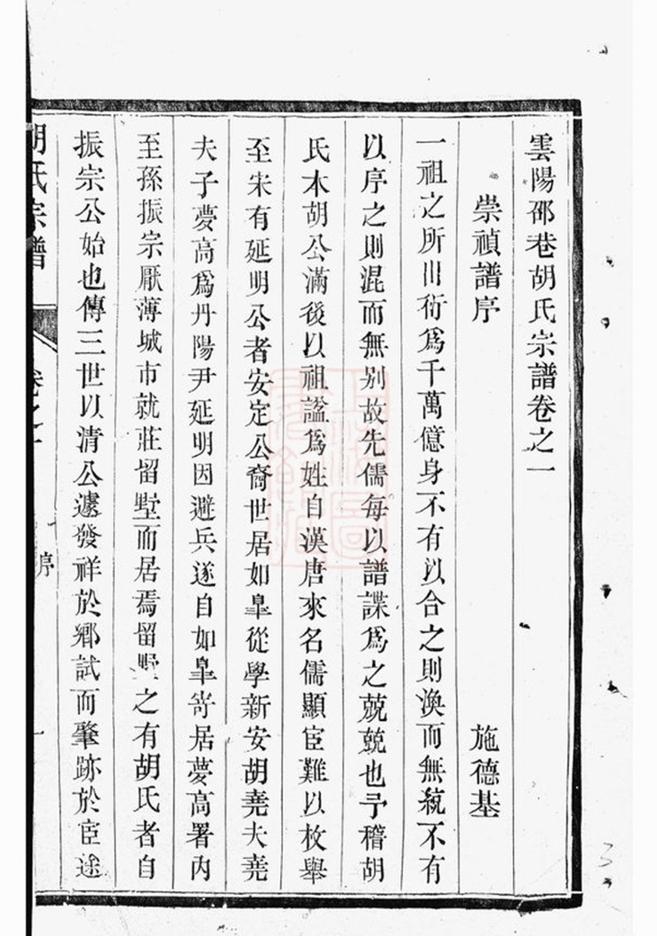 雲陽邵巷胡氏宗譜卷之一
崇禎譜序 施德基
一祖之所川衍爲千萬億身不有以合之則渙而無統不有
以序之則混而無别故先儒每以譜諜爲之兢兢也予稽胡
氏本胡公滿後以祖謚爲姓自漢唐來名儒顯宦難以枚舉
至宋有延明公者安定公裔世居如臯從學新安胡堯夫堯
夫子夢高爲丹陽尹延明因避兵遂自如臯寄居夢高署内
至孫振宗厭薄城市就莊留墅而居焉留墅之有胡氏者自
振宗公始也傳三世以清公遽發祥於鄉試而肇跡於宦途
胡氏宗譜 卷之一 序 一